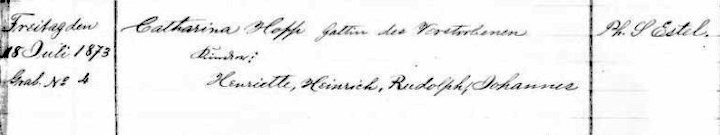 Freitag den Catharina Hopp Gattin des Verstorbenen Ph. S. Estel.
18 Juli 1873 Kinder:
Grab. No 4 Henriette, Heinrich, Rudolph, Johannes